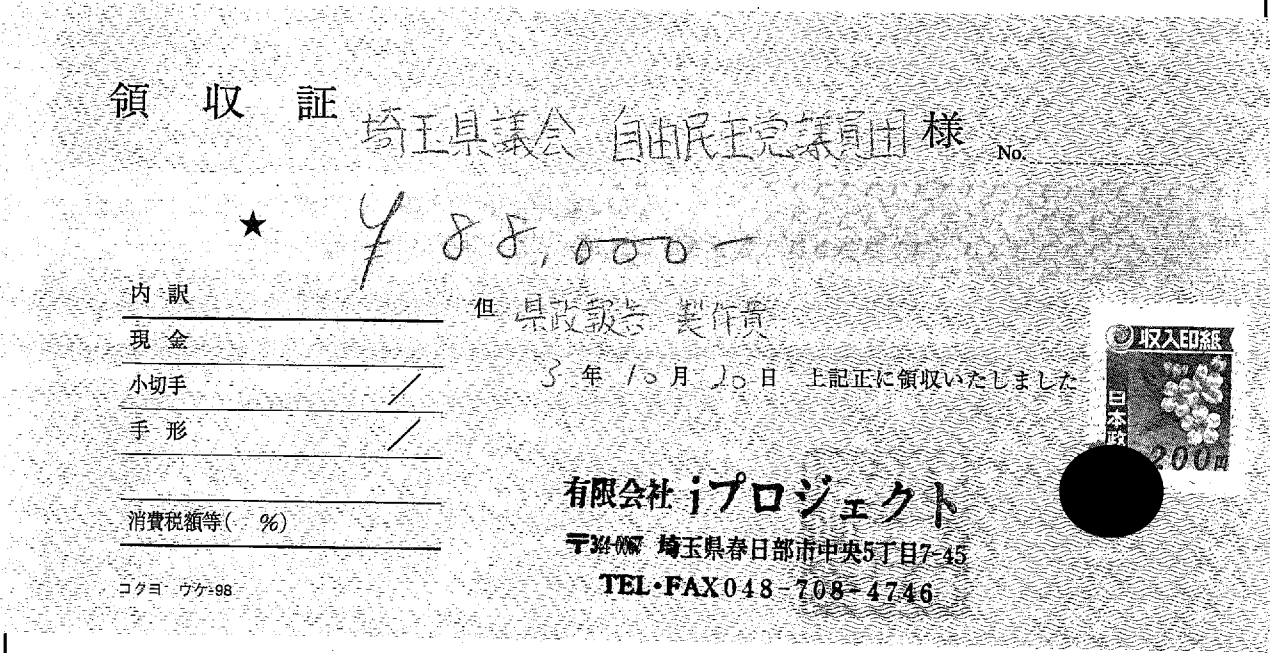 領 収 証
埼玉県議会 自由民主党議員団 様
No.
★ ¥ 88,000-
内 訳
現 金
小切手 /
手 形 /
消費税額等( %)
コクヨ ウケ-98
但 県政報告 製作費
3 年 10 月 20 日 上記正に領収いたしました
収入印紙
日本政
200円
有限会社 jプロジェクト
〒344-0067 埼玉県春日部市中央5丁目7-45
TEL・FAX048-708-4746